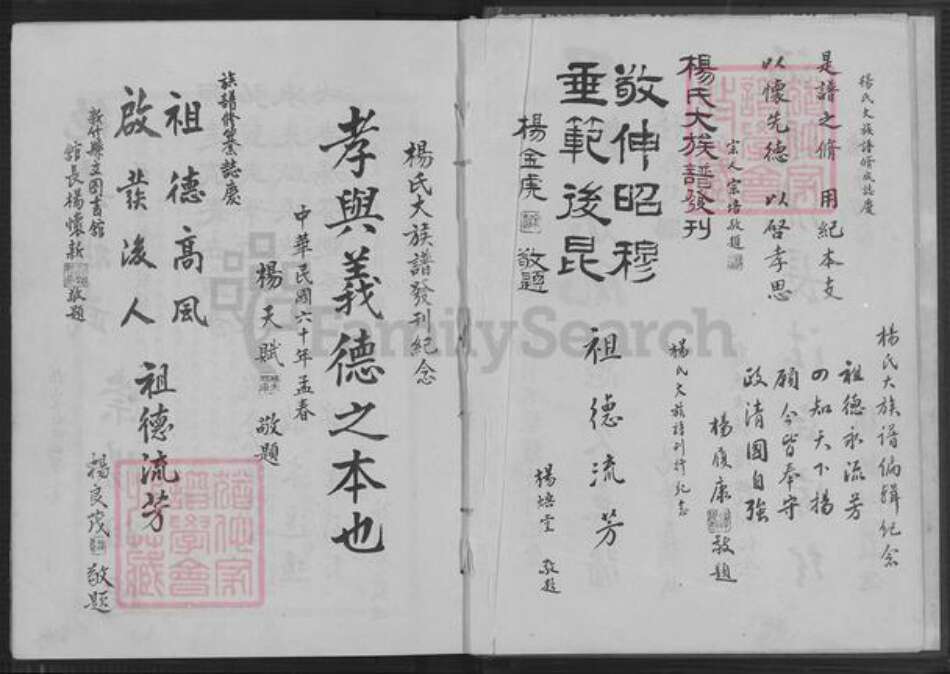 楊氏大族譜修成誌慶
是譜之脩 用紀本支
以懷先德 以啓孝思
宗人宗培敬題
楊氏大族譜發刊
敬伸昭穆
垂範後昆
楊金虎 敬題
楊氏大族譜編輯紀念
祖德永流芳
四知天下揚
願今皆奉守
政清國自強
楊履康 敬題
楊氏大族譜刊行紀念
祖德流芳
楊焙堂 敬題
楊氏大族譜發刊紀念
孝與義德之本也
中華民國六十年孟春
楊天賦 敬題
族譜修纂誌慶
祖德高風
啟發後人
彰化縣立圖書館
館長楊懷新 敬題
祖德流芳
楊良茂 敬題
FamilySearch